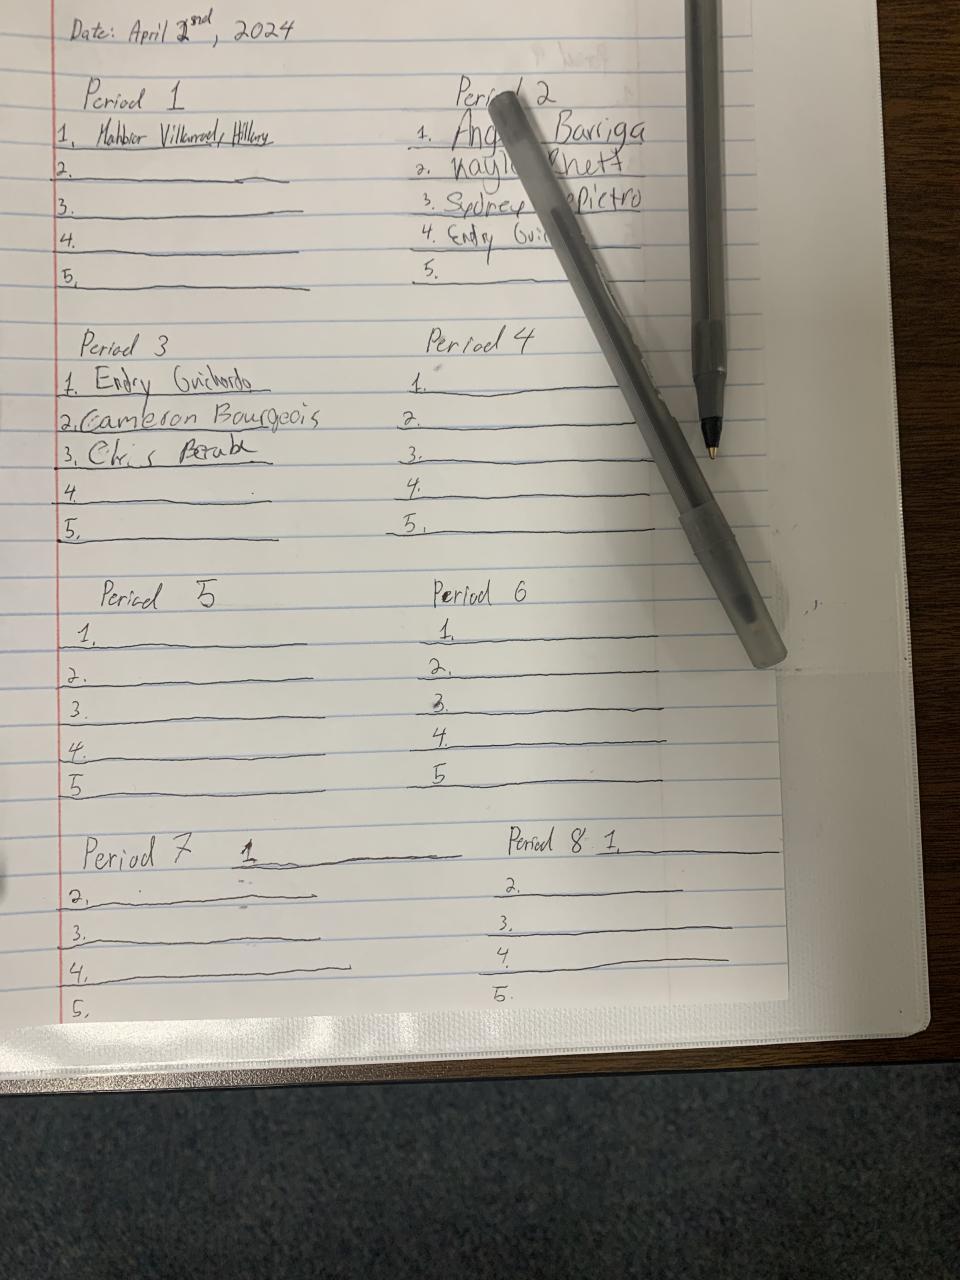 Date: April 2nd, 2024
Period 1
1. Villarroel, Hillary
2.
3.
4.
5.
Period 2
1. Ang Barriga
2. Kayl
3. Sydney
4. Endry Gui
5.
Period 3
1. Endry Guichardo
2. Cameron Bourgeois
3. Chris Berube
4.
5.
Period 4
1.
2.
3.
4.
5.
Period 5
1.
2.
3.
4.
5
Period 6
1.
2.
3.
4.
5
Period 7 1
2.
3.
4.
5.
Period 8 1.
2.
3.
4.
5.